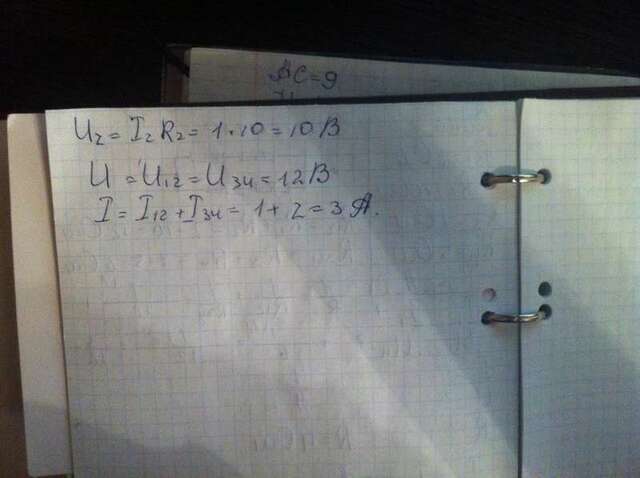 AC=9
U₂ = I₂ R₂ = 1·10 = 10 В
U = U₁₂ = U₃₄ = 12 В
I = I₁₂ + I₃₄ = 1 + 2 = 3 А.